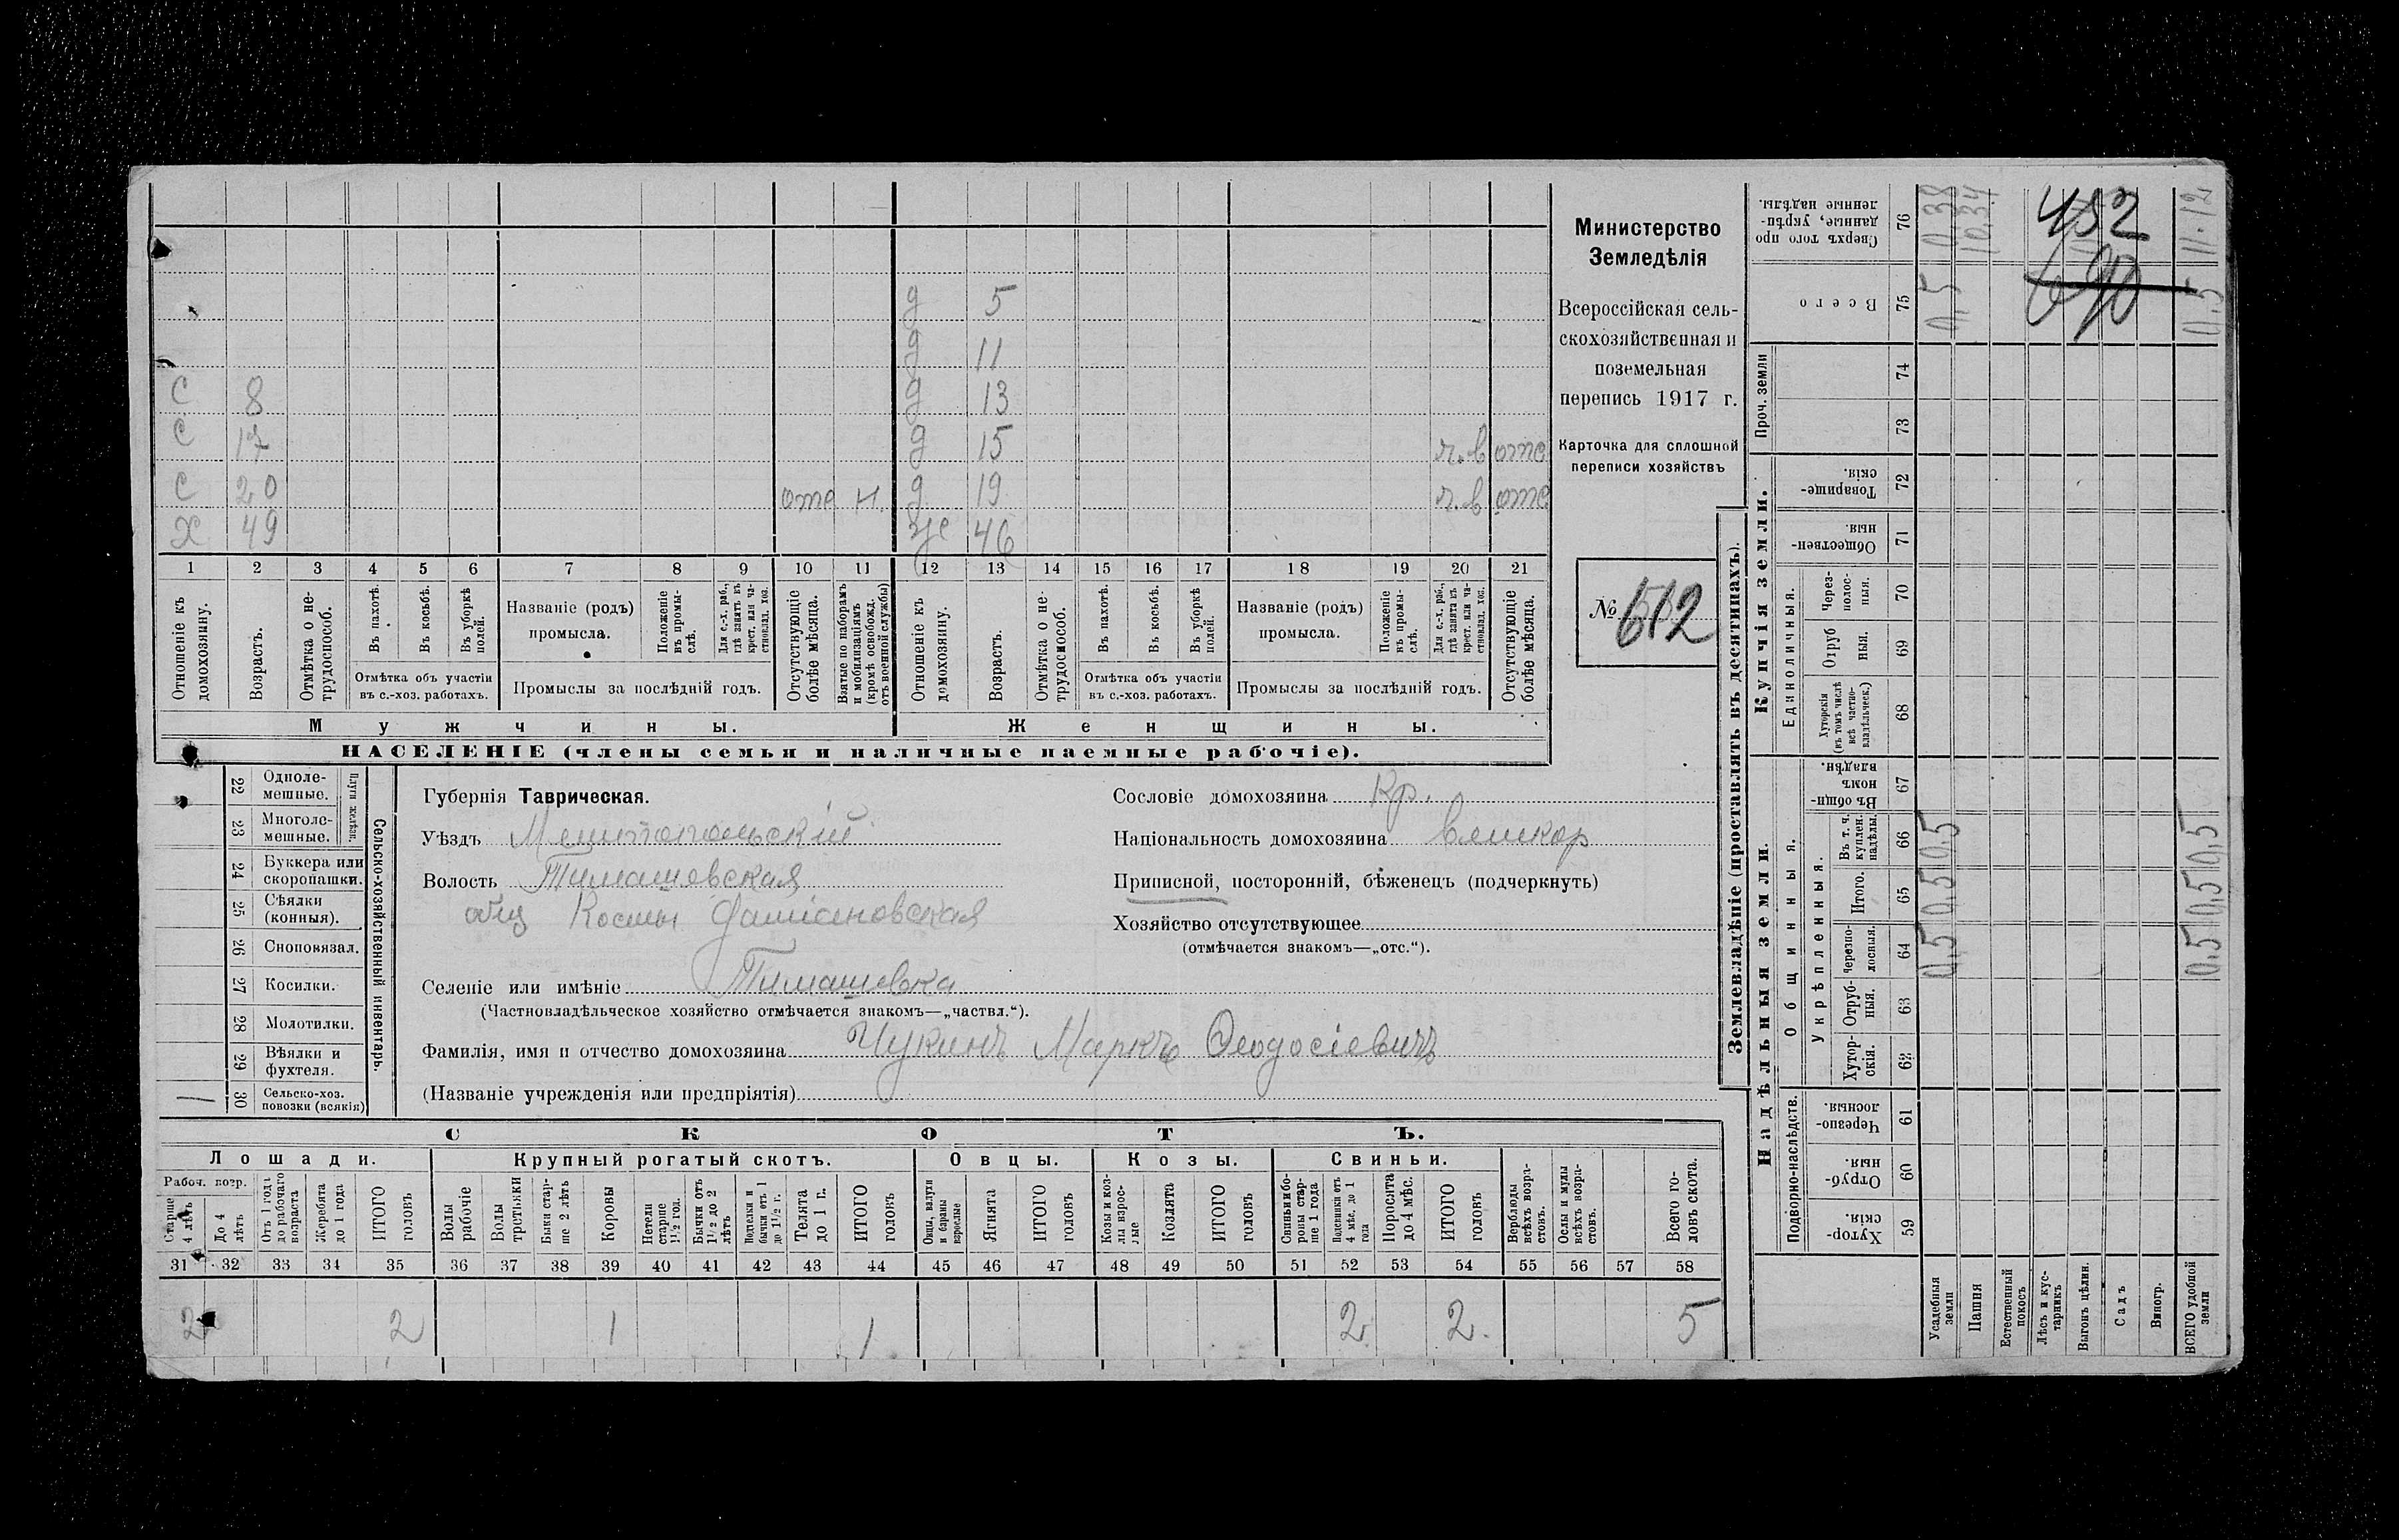 С 8 д 5
С 17 д 11
С 20 отс н. д 13
Х 49 д 15 ч.в отс
д 19 ч.в отс
же 46
1 2 3 4 5 6 7 8 9 10 11 12 13 14 15 16 17 18 19 20 21
Отношеніе къ домохозяину.
Возрастъ.
Отмѣтка о нетрудоспособ.
Въ пахотѣ.
Въ косьбѣ.
Въ уборкѣ полей.
Отмѣтка объ участіи въ с.-хоз. работахъ.
Названіе (родъ) промысла.
Положеніе въ промыслѣ.
Для с.-х. раб., гдѣ занятъ въ крест. или частновлад. хоз.
Промыслы за послѣдній годъ.
Отсутствующіе болѣе мѣсяца.
Взятые по наборамъ и мобилизаціямъ (кромѣ освобожд. отъ военной службы)
Отношеніе къ домохозяину.
Возрастъ.
Отмѣтка о нетрудоспособ.
Въ пахотѣ.
Въ косьбѣ.
Въ уборкѣ полей.
Отмѣтка объ участіи въ с.-хоз. работахъ.
Названіе (родъ) промысла.
Положеніе въ промыслѣ.
Для с.-х. раб., гдѣ занята въ крест. или частновлад. хоз.
Промыслы за послѣдній годъ.
Отсутствующіе болѣе мѣсяца.
Мужчины.
Женщины.
НАСЕЛЕНІЕ (члены семьи и наличные наемные рабочіе).
Министерство
Земледѣлія
Всероссійская сель-
скохозяйственная и
поземельная
перепись 1917 г.
Карточка для сплошной
переписи хозяйствъ
№ 612
Сельско-хозяйственный инвентарь.
Плуги желѣзн.
22 Одноле-
мешные.
23 Многоле-
мешные.
24 Буккера или
скоропашки.
25 Сѣялки
(конныя).
26 Сноповязал.
27 Косилки.
28 Молотилки.
29 Вѣялки и
фухтеля.
1 30 Сельско-хоз.
повозки (всякія)
Губернія Таврическая.
Уѣздъ Мелитопольскій
Волость Тимашевская
общ Косьмы Даміановская
Селеніе или имѣніе Тимашевка
(Частновладѣльческое хозяйство отмѣчается знакомъ—„частвл.“).
Фамилія, имя и отчество домохозяина Чукинъ Маркъ Ѳеодосіевичъ
(Названіе учрежденія или предпріятія)
Сословіе домохозяина Кр.
Національность домохозяина великор
Приписной, посторонній, бѣженецъ (подчеркнуть)
Хозяйство отсутствующее
(отмѣчается знакомъ—„отс.“).
СКОТЪ.
Лошади. Крупный рогатый скотъ. Овцы. Козы. Свиньи.
Рабоч. возр.
Старше 4 лѣтъ
До 4 лѣтъ
Отъ 1 года до рабочаго возраста
Жеребята до 1 года
ИТОГО головъ
Волы рабочіе
Волы третьяки
Быки старше 2 лѣтъ
Коровы
Нетели старше 1½ год.
Бычки отъ 1½ до 2 лѣтъ
Подтелки и бычки отъ 1 до 1½ г.
Телята до 1 г.
ИТОГО головъ
Овцы, валухи и бараны взрослые
Ягнята
ИТОГО головъ
Козы и козлы взрослые
Козлята
ИТОГО головъ
Свиньи и бороны старше 1 года
Подсвинки отъ 4 мѣс. до 1 года
Поросята до 4 мѣс.
ИТОГО головъ
Верблюды всѣхъ возрастовъ.
Ослы и мулы всѣхъ возрастовъ.
Всего головъ скота.
31 32 33 34 35 36 37 38 39 40 41 42 43 44 45 46 47 48 49 50 51 52 53 54 55 56 57 58
2 2 1 1 2 2. 5
Землевладѣніе (проставлять въ десятинахъ).
Купчія земли.
Надѣльныя земли.
Сверхъ того проданные, укрѣпленные надѣлы. 76 0,38 10,34
452
690
11.12
Всего 75 0,5 0,5
Проч. земли 74
73
Товарищескія. 72
Общественныя. 71
Единоличныя.
Черезполосныя. 70
Отрубныя. 69
Хуторскія (въ томъ числѣ всѣ частновладѣльческ.) 68
Общинныя.
Въ общиномъ владѣн. 67
Укрѣпленныя.
Въ т. ч. куплен. надѣлы. 66 0,5 0,5
Итого. 65 0,5 0,5
Черезполосныя. 64 0,5 0,5
Отрубныя. 63
Хуторскія. 62
Подворно-наслѣдств.
Черезполосныя. 61
Отрубныя. 60
Хуторскія. 59
Усадебныя земли
Пашня
Естественный покосъ
Лѣсъ и кустарникъ
Выгонъ цѣлин.
Садъ
Виногр.
ВСЕГО удобной земли